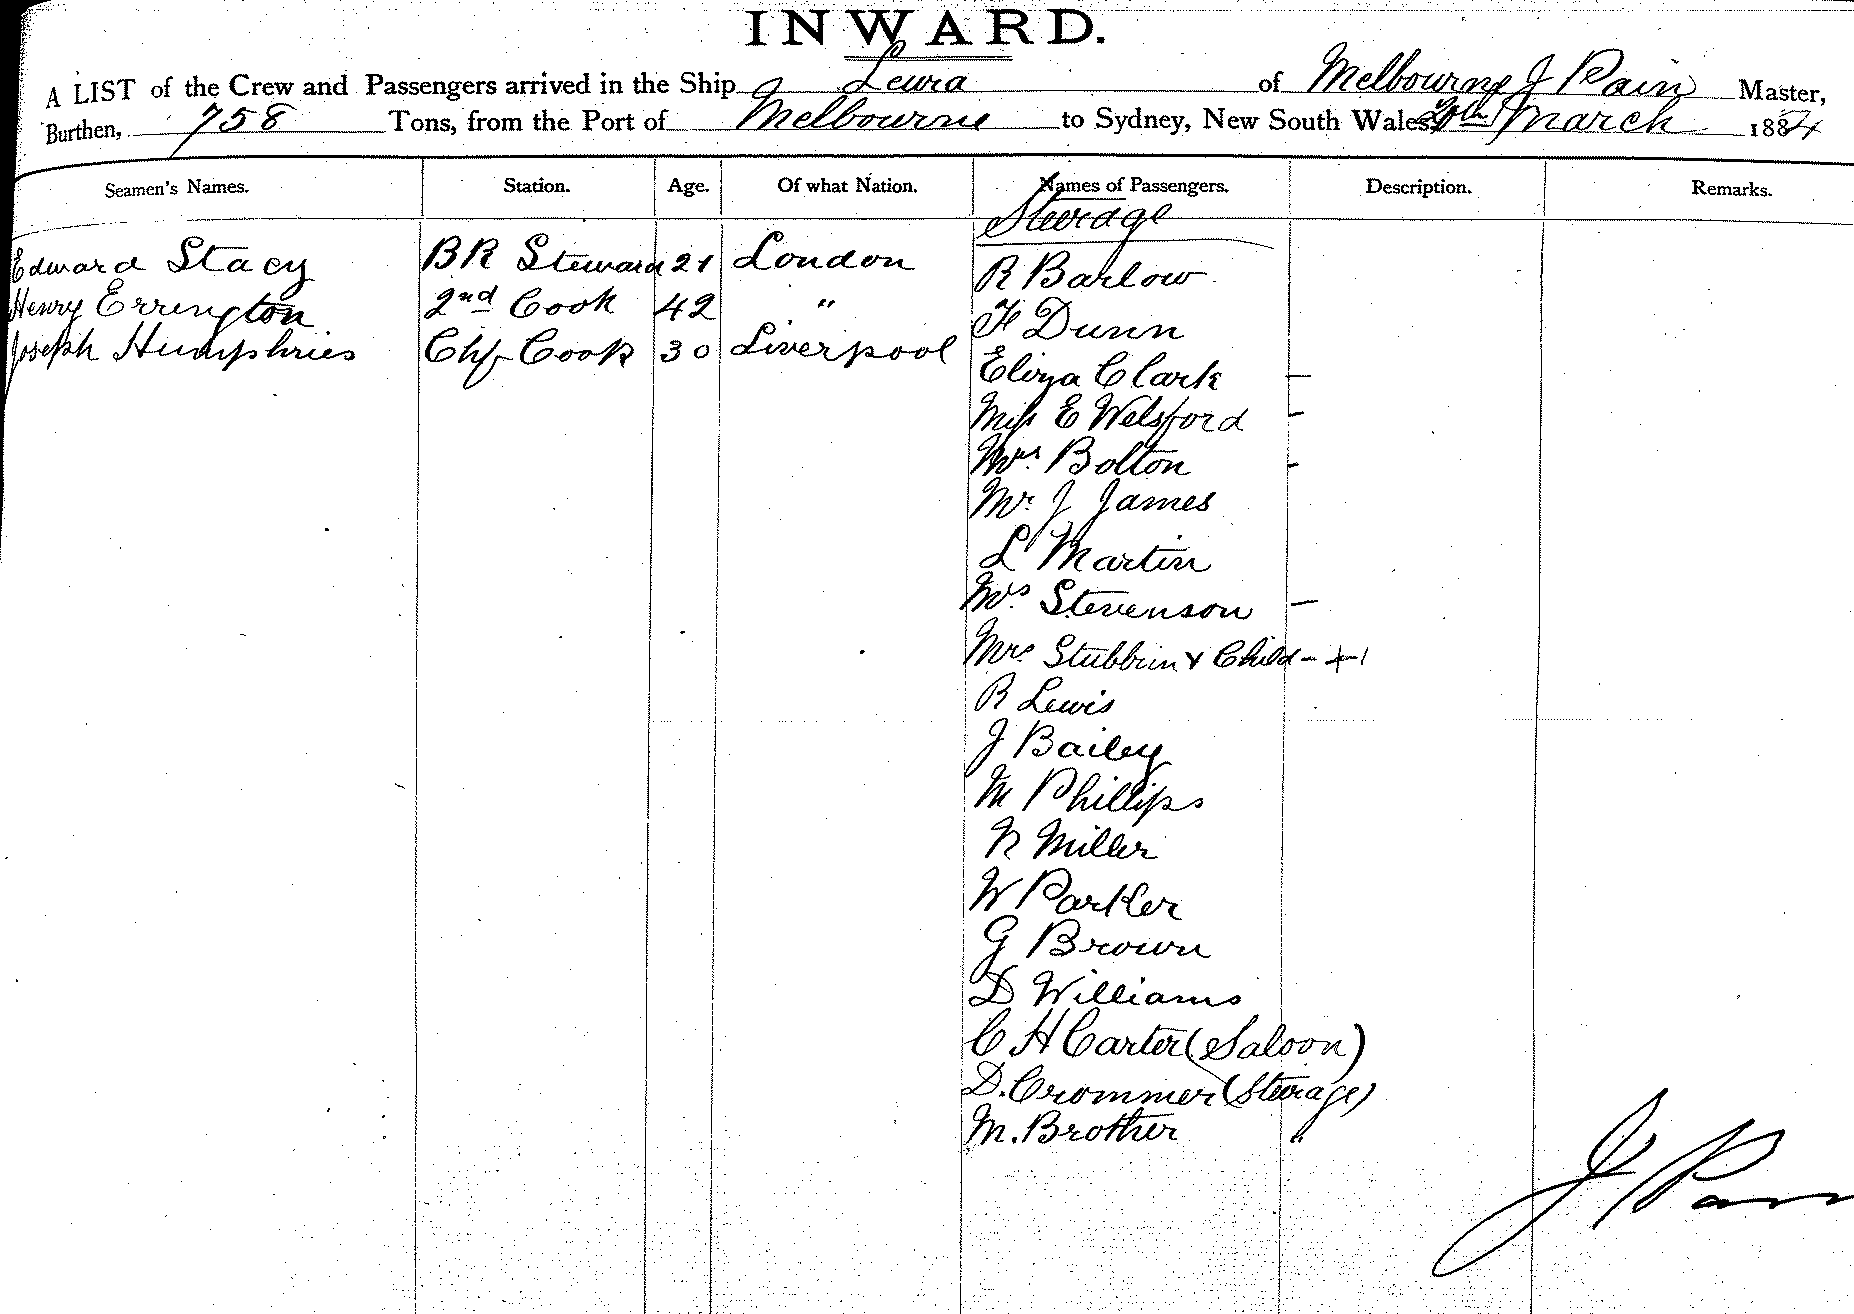 INWARD.
A LIST of the Crew and Passengers arrived in the Ship Leura of Melbourne J Pain Master,
Burthen, 758 Tons, from the Port of Melbourne to Sydney, New South Wales 20th March 1884
Seamen's Names. Station. Age. Of what Nation. Names of Passengers. Description. Remarks.
Steerage
Edward Stacy BR Steward 21 London R Barlow
Henry Errington 2nd Cook 42 " F Dunn
Joseph Humphries Chf Cook 30 Liverpool Eliza Clark —
Miss E Welsford -
Mrs. Bolton -
Mr. J James
L Martin
Mrs. Stevenson —
Mrs. Stubbin & Child - + 1
R Lewis
J Bailey
M Phillips
R Miller
W Parker
G Brown
D Williams
C H Carter (Saloon)
D. Crommer (Steerage)
M. Brother "
J Pain